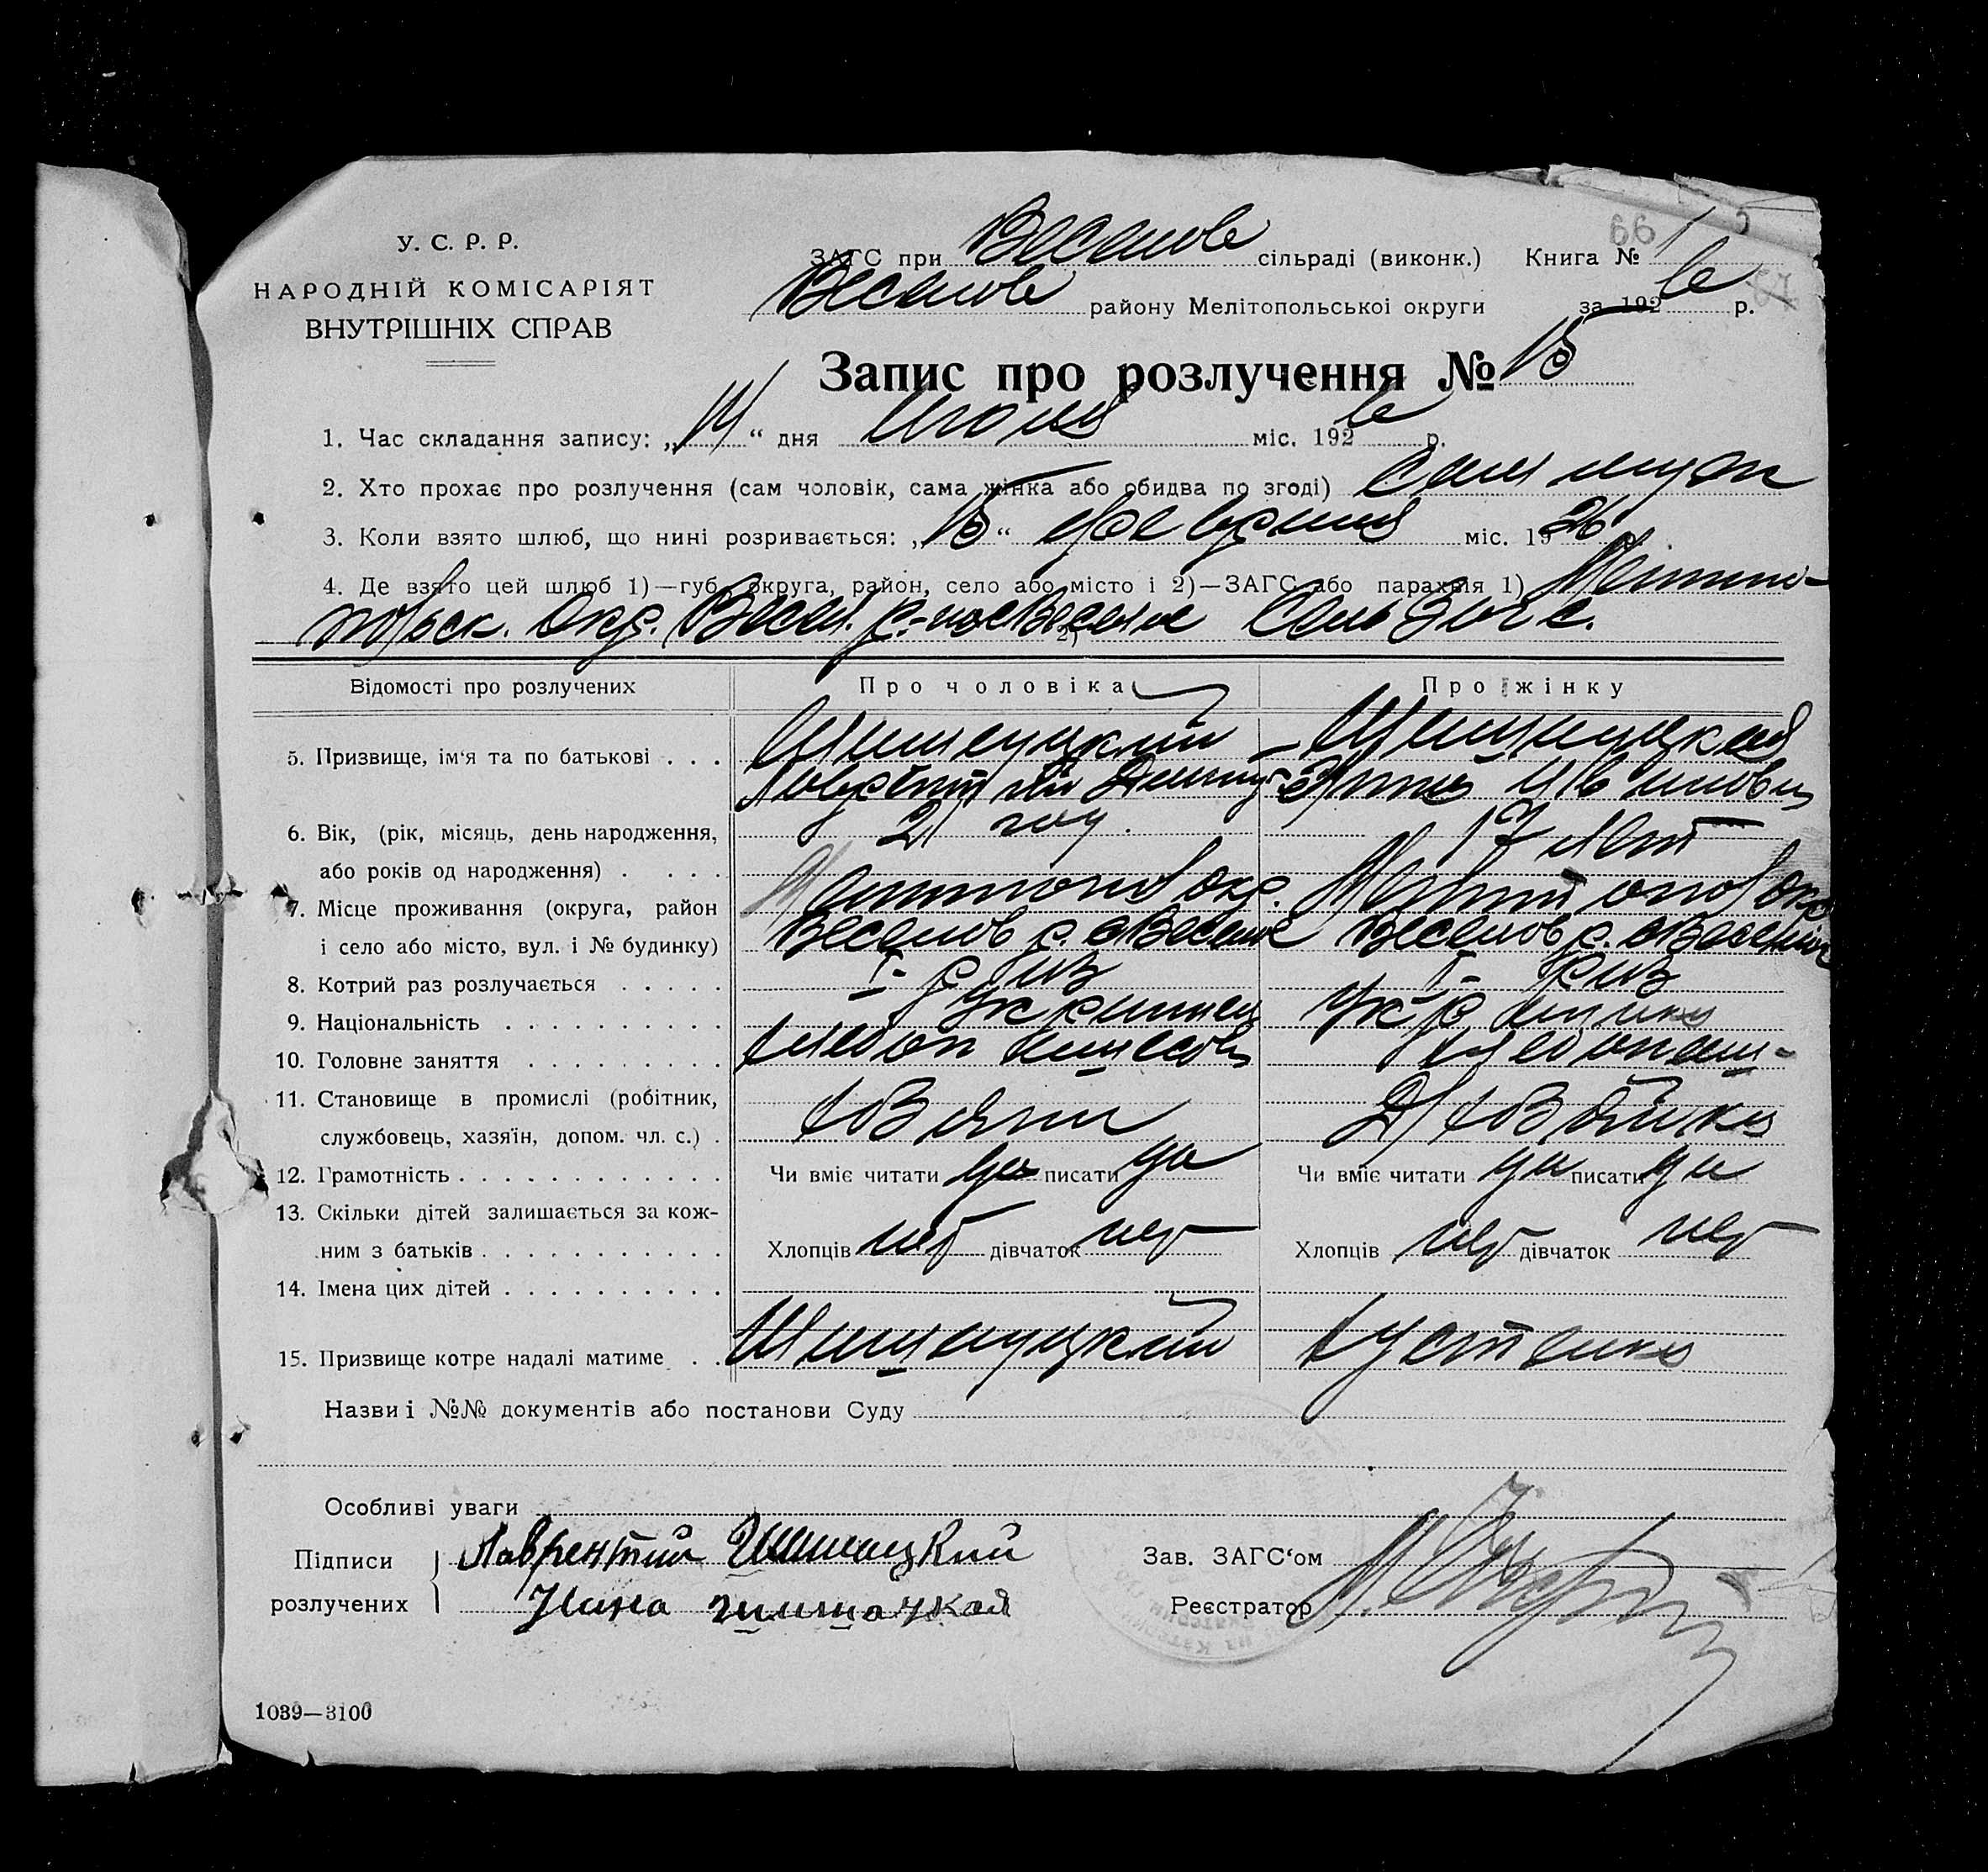 У. С. Р. Р.
НАРОДНІЙ КОМІСАРІЯТ
ВНУТРІШНІХ СПРАВ
66
ЗАГС при Веселов сільраді (виконк.) Книга № 1
Веселов району Мелітопольської округи за 192 6 р.
67
Запис про розлучення № 15
1. Час складання запису: „14“ дня Июля міс. 192 6 р.
2. Хто прохає про розлучення (сам чоловік, сама жінка або обидва по згоді) Сам муж
3. Коли взято шлюб, що нині розривається: „15“ февраля міс. 19 26 р.
4. Де взято цей шлюб 1)—губ., округа, район, село або місто і 2)—ЗАГС або парахвія 1) Мелито-
польск. Окр. Весел. р. 2) Сель Загс.
Відомості про розлучених Про чоловіка Про жінку
5. Призвище, ім‘я та по батькові . . . Шишацкий Шишацкая
Лаврентий Нина Ивановна
6. Вік, (рік, місяць, день народження, 21 год. 17 лет
або років од народження) . . . .
7. Місце проживання (округа, район Мелитопол окр. Мелитопол окр
і село або місто, вул. і № будинку) Веселов р. с Веселое Веселов р. с Веселое
8. Котрий раз розлучається . . . . . I- раз I- раз
9. Національність . . . . . . . . . . Украинец Украинка
10. Головне заняття . . . . . . . . . Хлебопашество Хлебопаш-
11. Становище в промислі (робітник, Хозяин Д/хозяйка
службовець, хазяїн, допом. чл. с.) .
12. Грамотність . . . . . . . . . . . . Чи вміє читати да писати да Чи вміє читати да писати да
13. Скільки дітей залишається за кож-
ним з батьків . . . . . . . . . . . Хлопців нет дівчаток нет Хлопців нет дівчаток нет
14. Імена цих дітей . . . . . . . . . .
15. Призвище котре надалі матиме . . Шишацкий
Назви і №№ документів або постанови Суду
Особливі уваги
Підписи Лаврентий Шишацкий Зав. ЗАГС‘ом
розлучених Нина Шишацкая Реєстратор
1039—3100